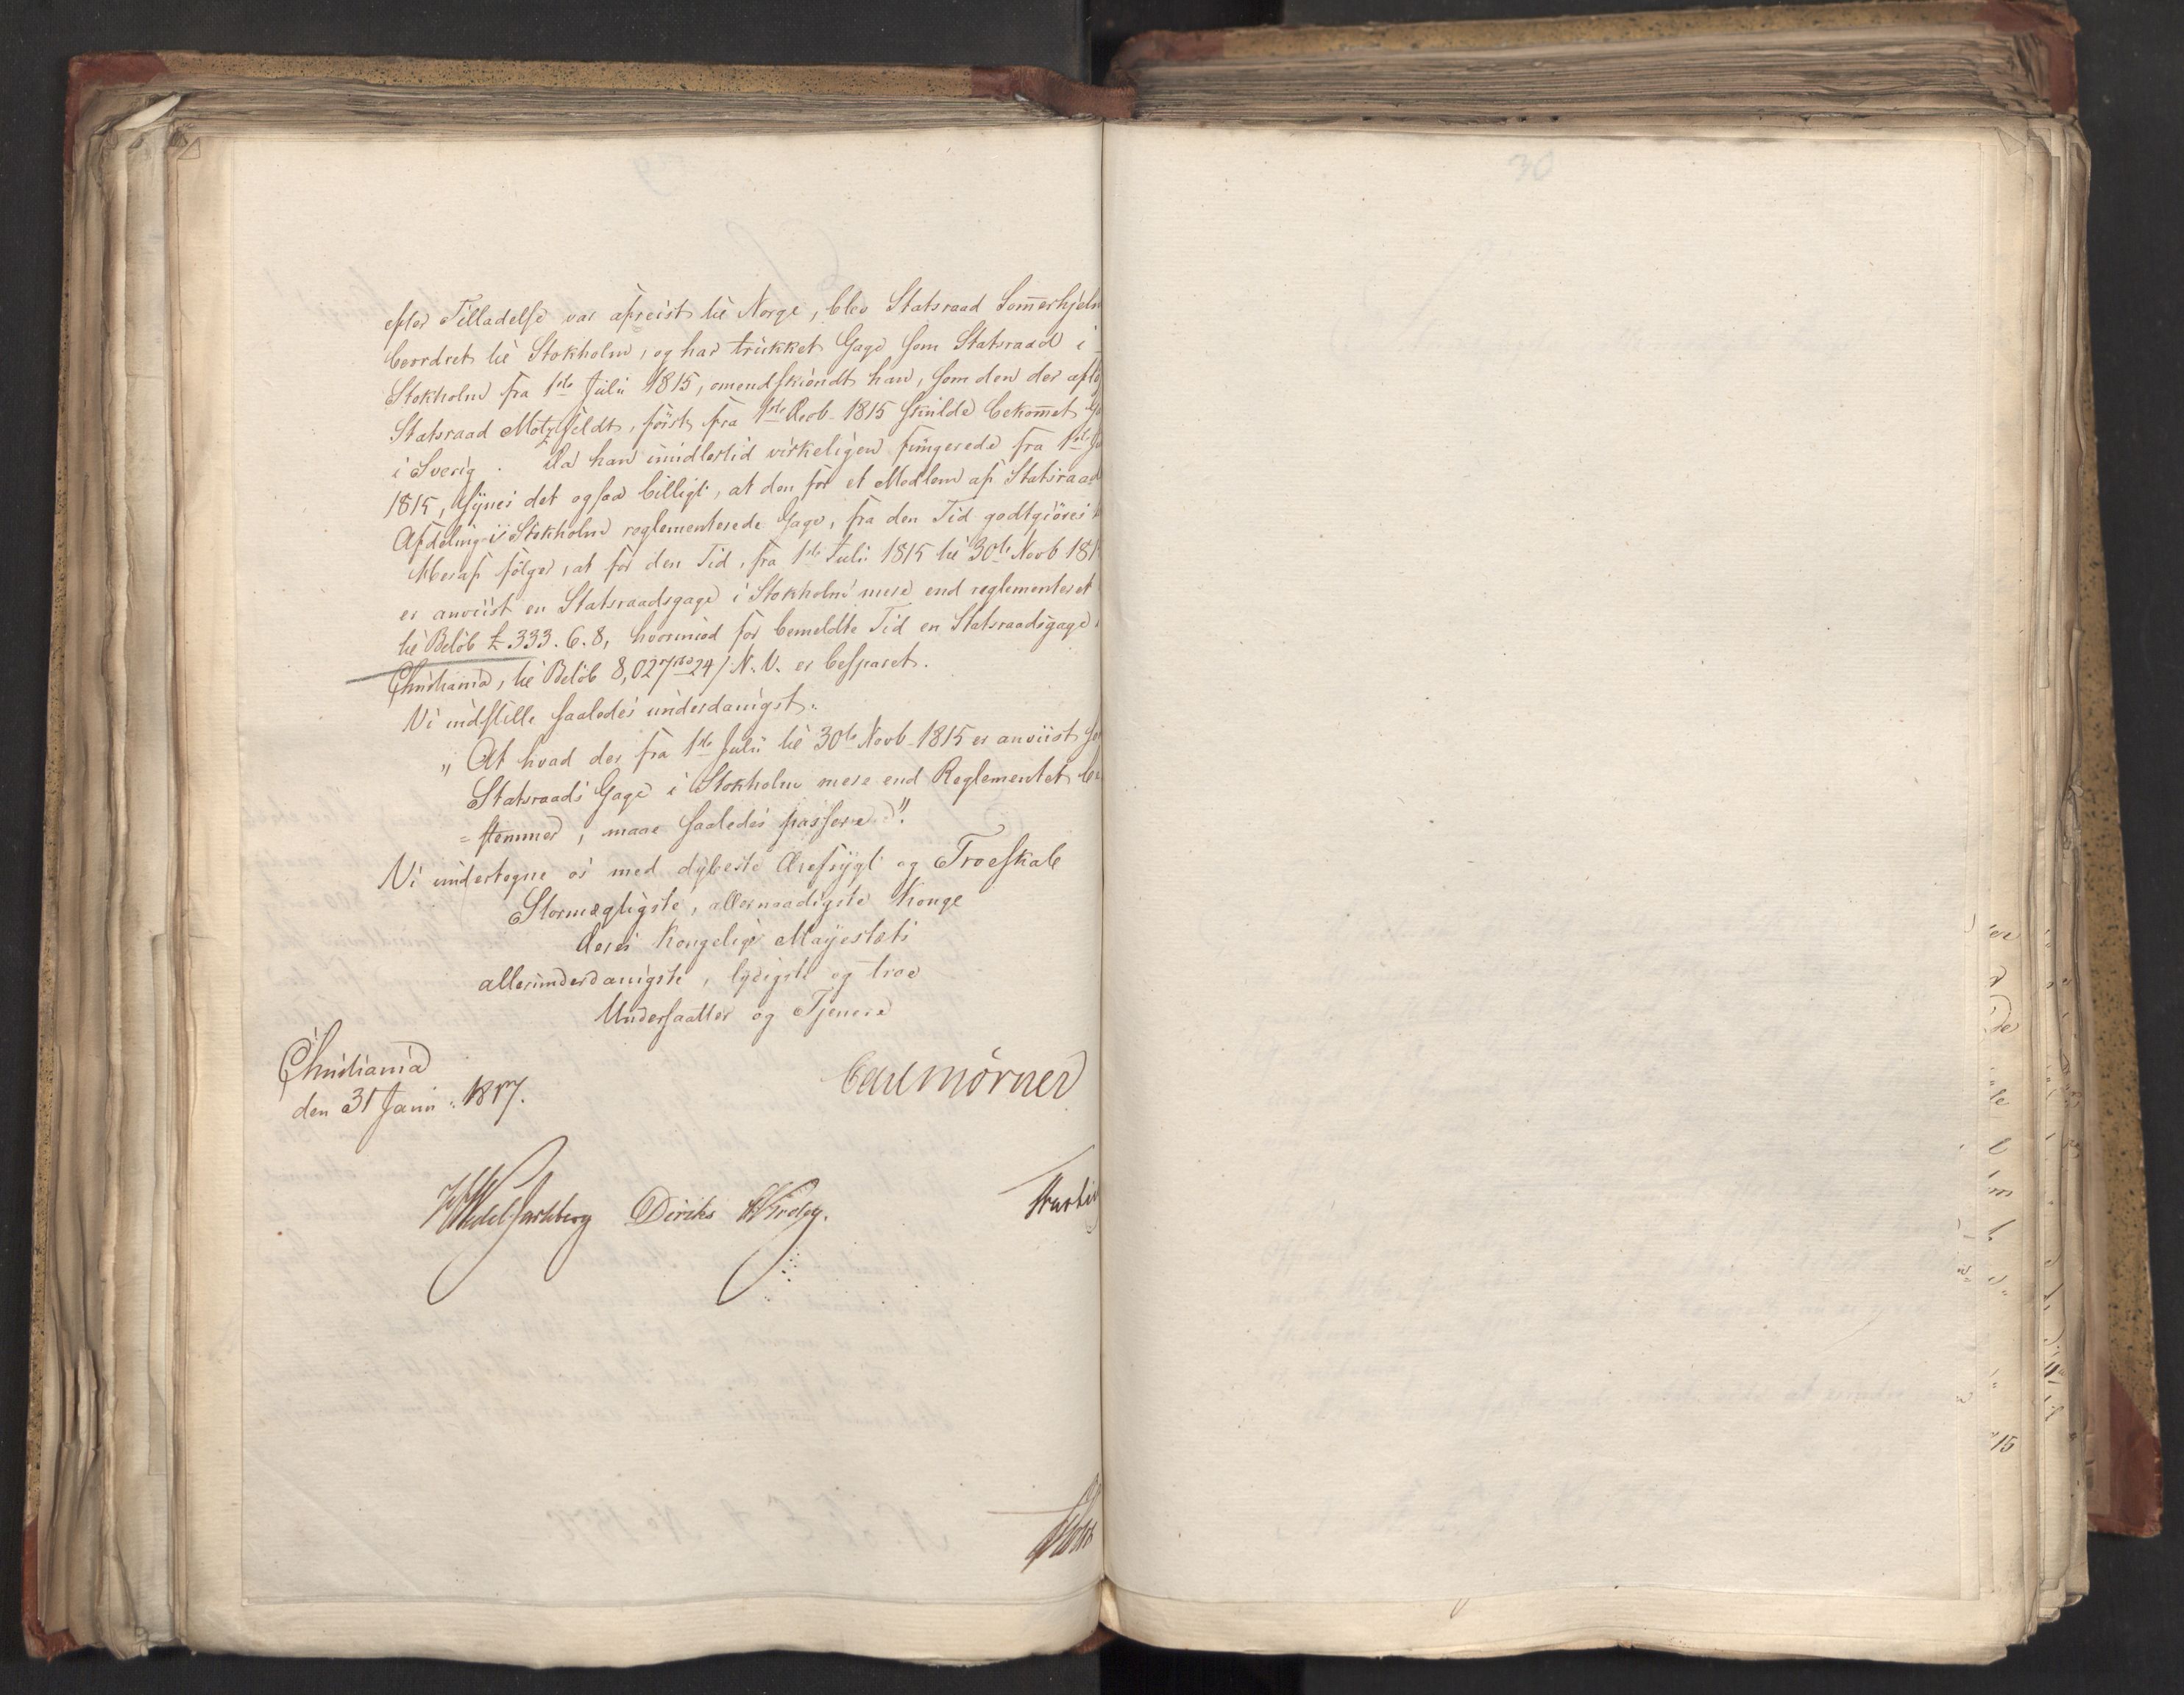 efter Tilladelse var afreist til Norge, blev Statsraad Som̅erhjelm
beordret til Stokholm, og har trukket Gage som Statsraad i
Stokholm fra 1ste Julii 1815, omendskiøndt han, som den der aflø
Statsraad Motzfeldt, først fra 1ste Decb. 1815 skulde bekom̅et Ga
i Sverig. Da han imidlertid virkeligen fungerede fra 1ste Ju
1815, synes det ogsaa billigt, at den for et Medlem af Statsraad
Afdeling i Stokholm reglementerede Gage, fra den Tid godtgiøres
Heraf følger, at for den Tid, fra 1ste Julii 1815 til 30te Novb 181
er anviist en Statsraadsgage i Stokholm mere end reglementeret
til Beløb £ 333. 6. 8, hvorimod for bemeldte Tid en Statsraadsgage
Christiania, til Beløb 8,027 24 N.V. er besparet.
Vi indstille saaledes underdanigst:
„At hvad der fra 1ste Julii til 30te Novb. 1815 er anviist
Statsraads Gage i Stokholm mere end Reglementet be
=stemmer, maae saaledes passere".
Vi undertegne os med dybeste Ærefrygt og Troeskab
Stormægtigste, allernaadigste Konge
Deres Kongelige Mayestæts
allerunderdanigste, lydigste og troe
Undersaatter og Tjenere
Christiania
den 31 Janu: 1817.
Carl Mörner
Wedel Jarlsberg Diriks Krohg.
30
15